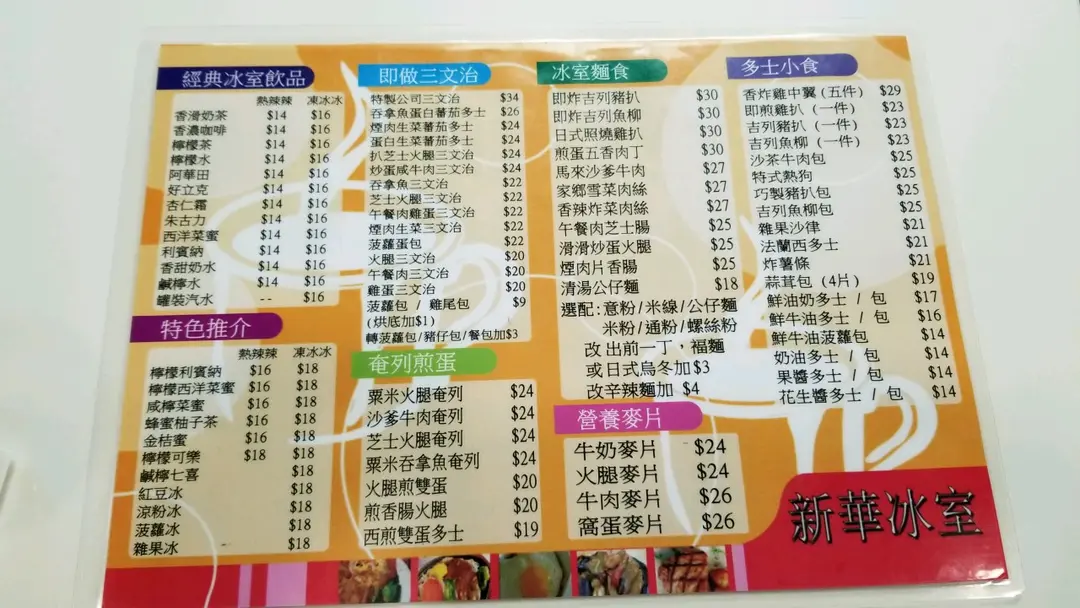 經典冰室飲品
熱辣辣 凍冰冰
香滑奶茶 $14 $16
香濃咖啡 $14 $16
檸檬茶 $14 $16
檸檬水 $14 $16
阿華田 $14 $16
好立克 $14 $16
杏仁霜 $14 $16
朱古力 $14 $16
西洋菜蜜 $14 $16
利賓納 $14 $16
香甜奶水 $14 $16
鹹檸水 $14 $16
罐裝汽水 -- $16
特色推介
熱辣辣 凍冰冰
檸檬利賓納 $16 $18
檸檬西洋菜蜜 $16 $18
咸檸菜蜜 $16 $18
蜂蜜柚子茶 $16 $18
金桔蜜 $16 $18
檸檬可樂 $18 $18
鹹檸七喜 $18
紅豆冰 $18
涼粉冰 $18
菠蘿冰 $18
雜果冰 $18
即做三文治
特製公司三文治 $34
吞拿魚蛋白蕃茄多士 $26
煙肉生菜蕃茄多士 $24
蛋白生菜蕃茄多士 $24
扒芝士火腿三文治 $24
炒蛋咸牛肉三文治 $24
吞拿魚三文治 $22
芝士火腿三文治 $22
午餐肉雞蛋三文治 $22
煙肉生菜三文治 $22
菠蘿蛋包 $22
火腿三文治 $20
午餐肉三文治 $20
雞蛋三文治 $20
菠蘿包 / 雞尾包 $9
(烘底加$1)
轉菠蘿包/豬仔包/餐包加$3
奄列煎蛋
粟米火腿奄列 $24
沙爹牛肉奄列 $24
芝士火腿奄列 $24
粟米吞拿魚奄列 $24
火腿煎雙蛋 $20
煎香腸火腿 $20
西煎雙蛋多士 $19
冰室麵食
即炸吉列豬扒 $30
即炸吉列魚柳 $30
日式照燒雞扒 $30
煎蛋五香肉丁 $30
馬來沙爹牛肉 $27
家鄉雪菜肉絲 $27
香辣炸菜肉絲 $27
午餐肉芝士腸 $25
滑滑炒蛋火腿 $25
煙肉片香腸 $25
清湯公仔麵 $18
選配:意粉/米線/公仔麵
米粉/通粉/螺絲粉
改出前一丁，福麵
或日式烏冬加$3
改辛辣麵加 $4
營養麥片
牛奶麥片 $24
火腿麥片 $24
牛肉麥片 $26
窩蛋麥片 $26
多士小食
香炸雞中翼(五件) $29
即煎雞扒 (一件) $23
吉列豬扒 (一件) $23
吉列魚柳 (一件) $23
沙茶牛肉包 $25
特式熱狗 $25
巧製豬扒包 $25
吉列魚柳包 $25
雜果沙律 $21
法蘭西多士 $21
炸薯條 $21
蒜茸包 (4片) $19
鮮油奶多士 / 包 $17
鮮牛油多士 / 包 $16
鮮牛油菠蘿包 $14
奶油多士 / 包 $14
果醬多士 / 包 $14
花生醬多士 / 包 $14
新華冰室